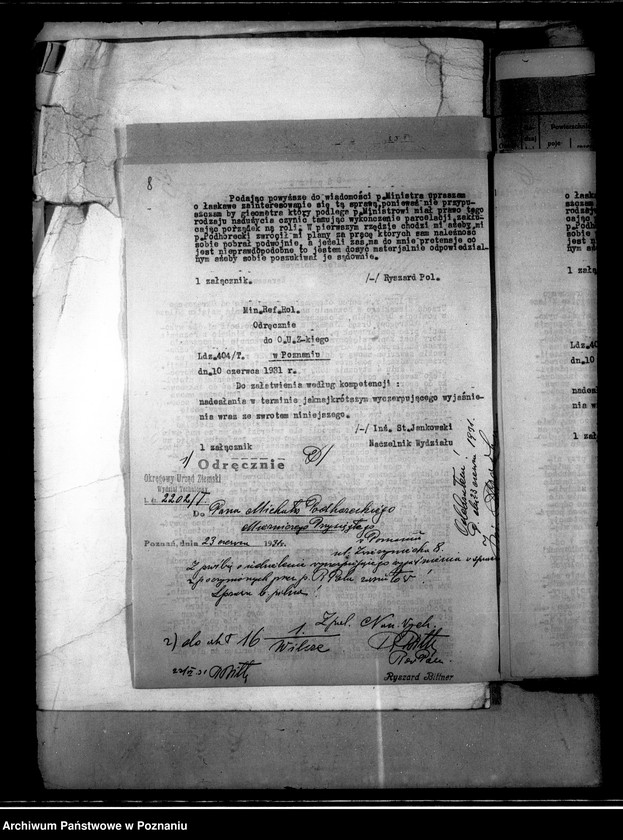 8
Podając powyższe do wiadomości p.Ministra upraszam
o łaskawe zainteresowanie się tą sprawą, ponieważ nie przypu-
szczam by gieometra który podlega p.Ministrowi miał prawo tego
rodzaju nadużycia czynić tamując wykonanie parcelacji, zakłu-
cając porządek na roli. W pierwszym rzędzie chodzi mi ażeby mi
p.Podhorecki zwrócił mi plany za pracę których sam należność
sobie pobrał podwojnie, a jeżeli zaś ma do mnie pretensje co
jest nieprawdopodobne to jestem dosyć materjalnie odpowiedzial-
nym ażeby sobie poszukiwał je sądownie.
1 załącznik. /-/ Ryszard Pol.
Min.Ref.Rol.
Odręcznie
do O.U.Z-kiego
Ldz.404/T. w Poznaniu
dn.10 czerwca 1931 r.
Do załatwienia według kompetencji :
nadesłania w terminie jaknajkrótszym wyczerpującego wyjaśnie-
nia wraz ze zwrotem niniejszego.
/-/ Inż. St.Jankowski
1 załącznik Naczelnik Wydziału
1/ Odręcznie
Okręgowy Urząd Ziemski
Wydział Techniczny
2202/T.
Do Pana Michała Podhoreckiego
Mierniczego Przysięgłego
w Poznaniu
Poznań, dnia 23 czerwca 1931.
8.
Z prośbą o udzielenie wyczerpującego wyjaśnienia w sprawie
poczynionych przez p. R. Pola zarzutów!
Sprawa b. pilna!
2) do akt 16 1. Zpol. Nacz. Wydz.
Wilcze
Ryszard Bittner
Powierzchni
Archiwum Państwowe w Poznaniu